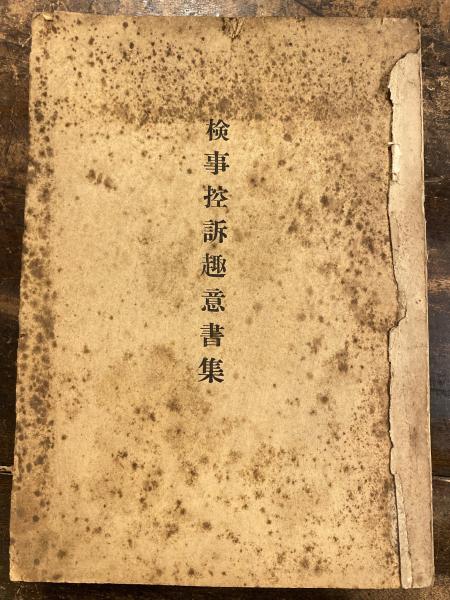 検事控訴趣意書集